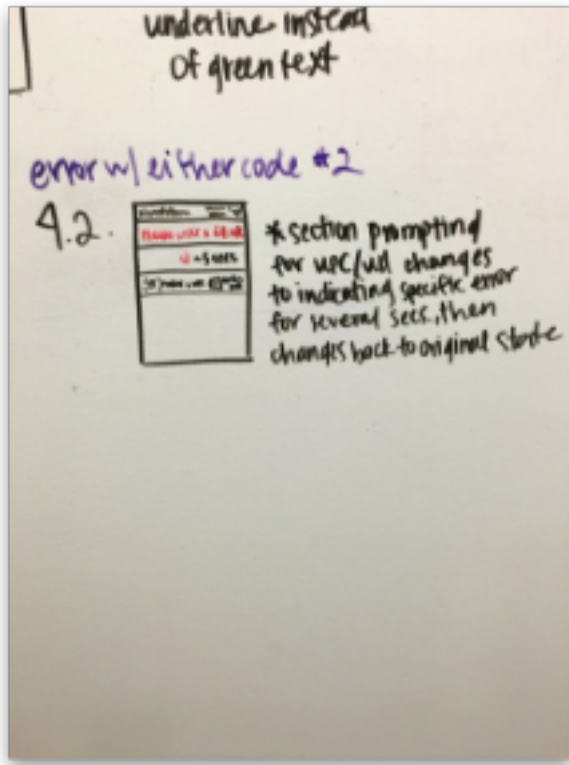 underline instead
of green text
error w/ either code #2
4.2.
* section prompting
for UPC/UID changes
to indicating specific error
for several secs, then
changes back to original state
~5 secs